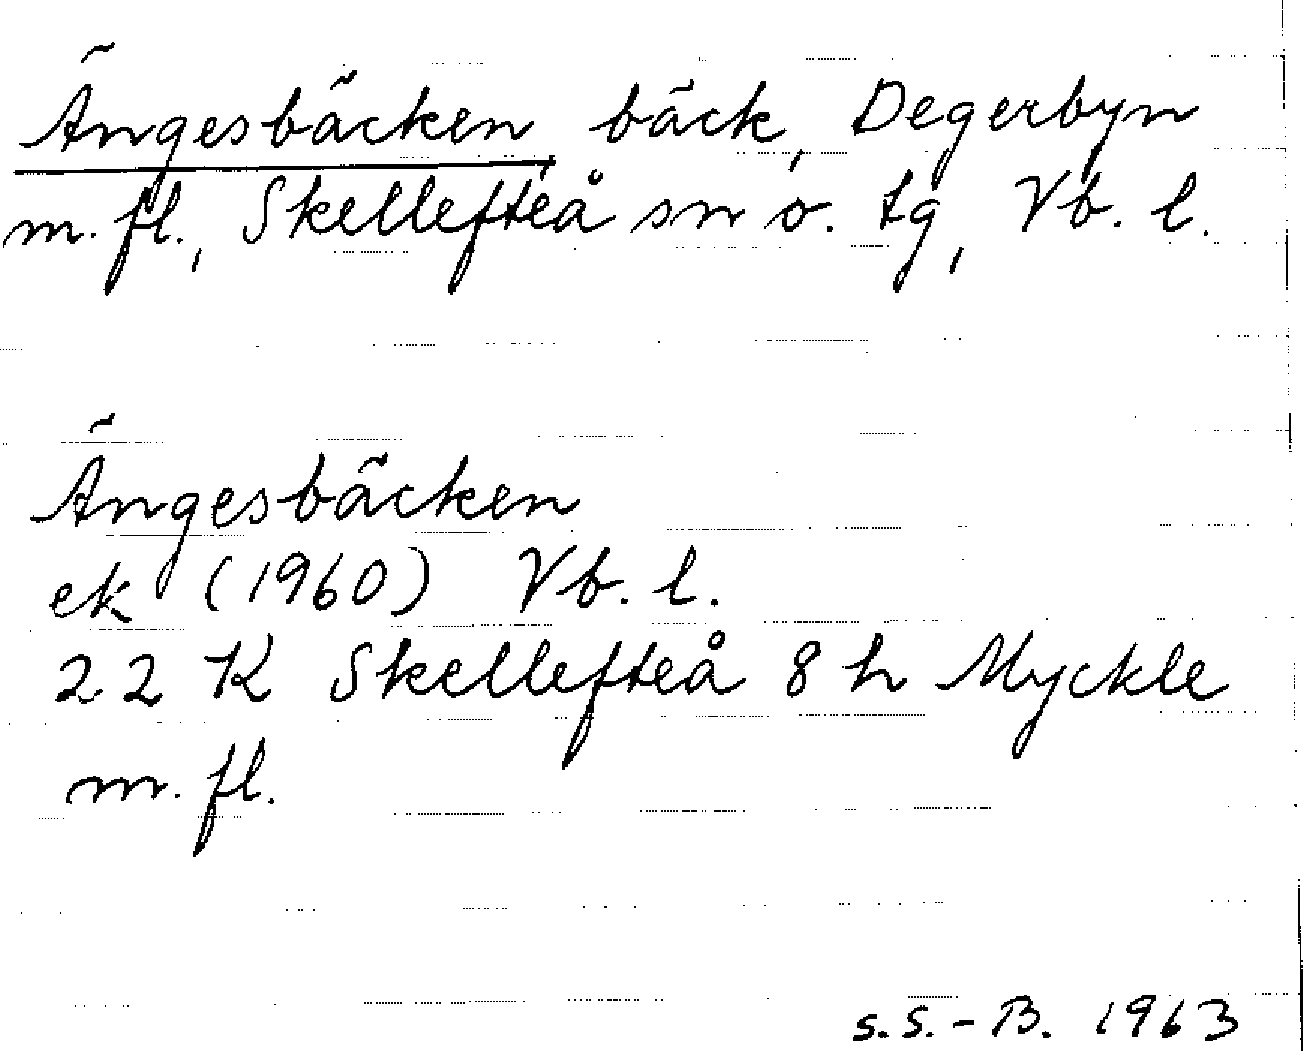 Ängesbäcken, bäck, Degerbyn
m. fl., Skellefteå sn o. tg, Vb. l.
Ängesbäcken
ek (1960) Vb. l.
22 K Skellefteå 8 h Myckle
m. fl.
S.S.-B. 1963